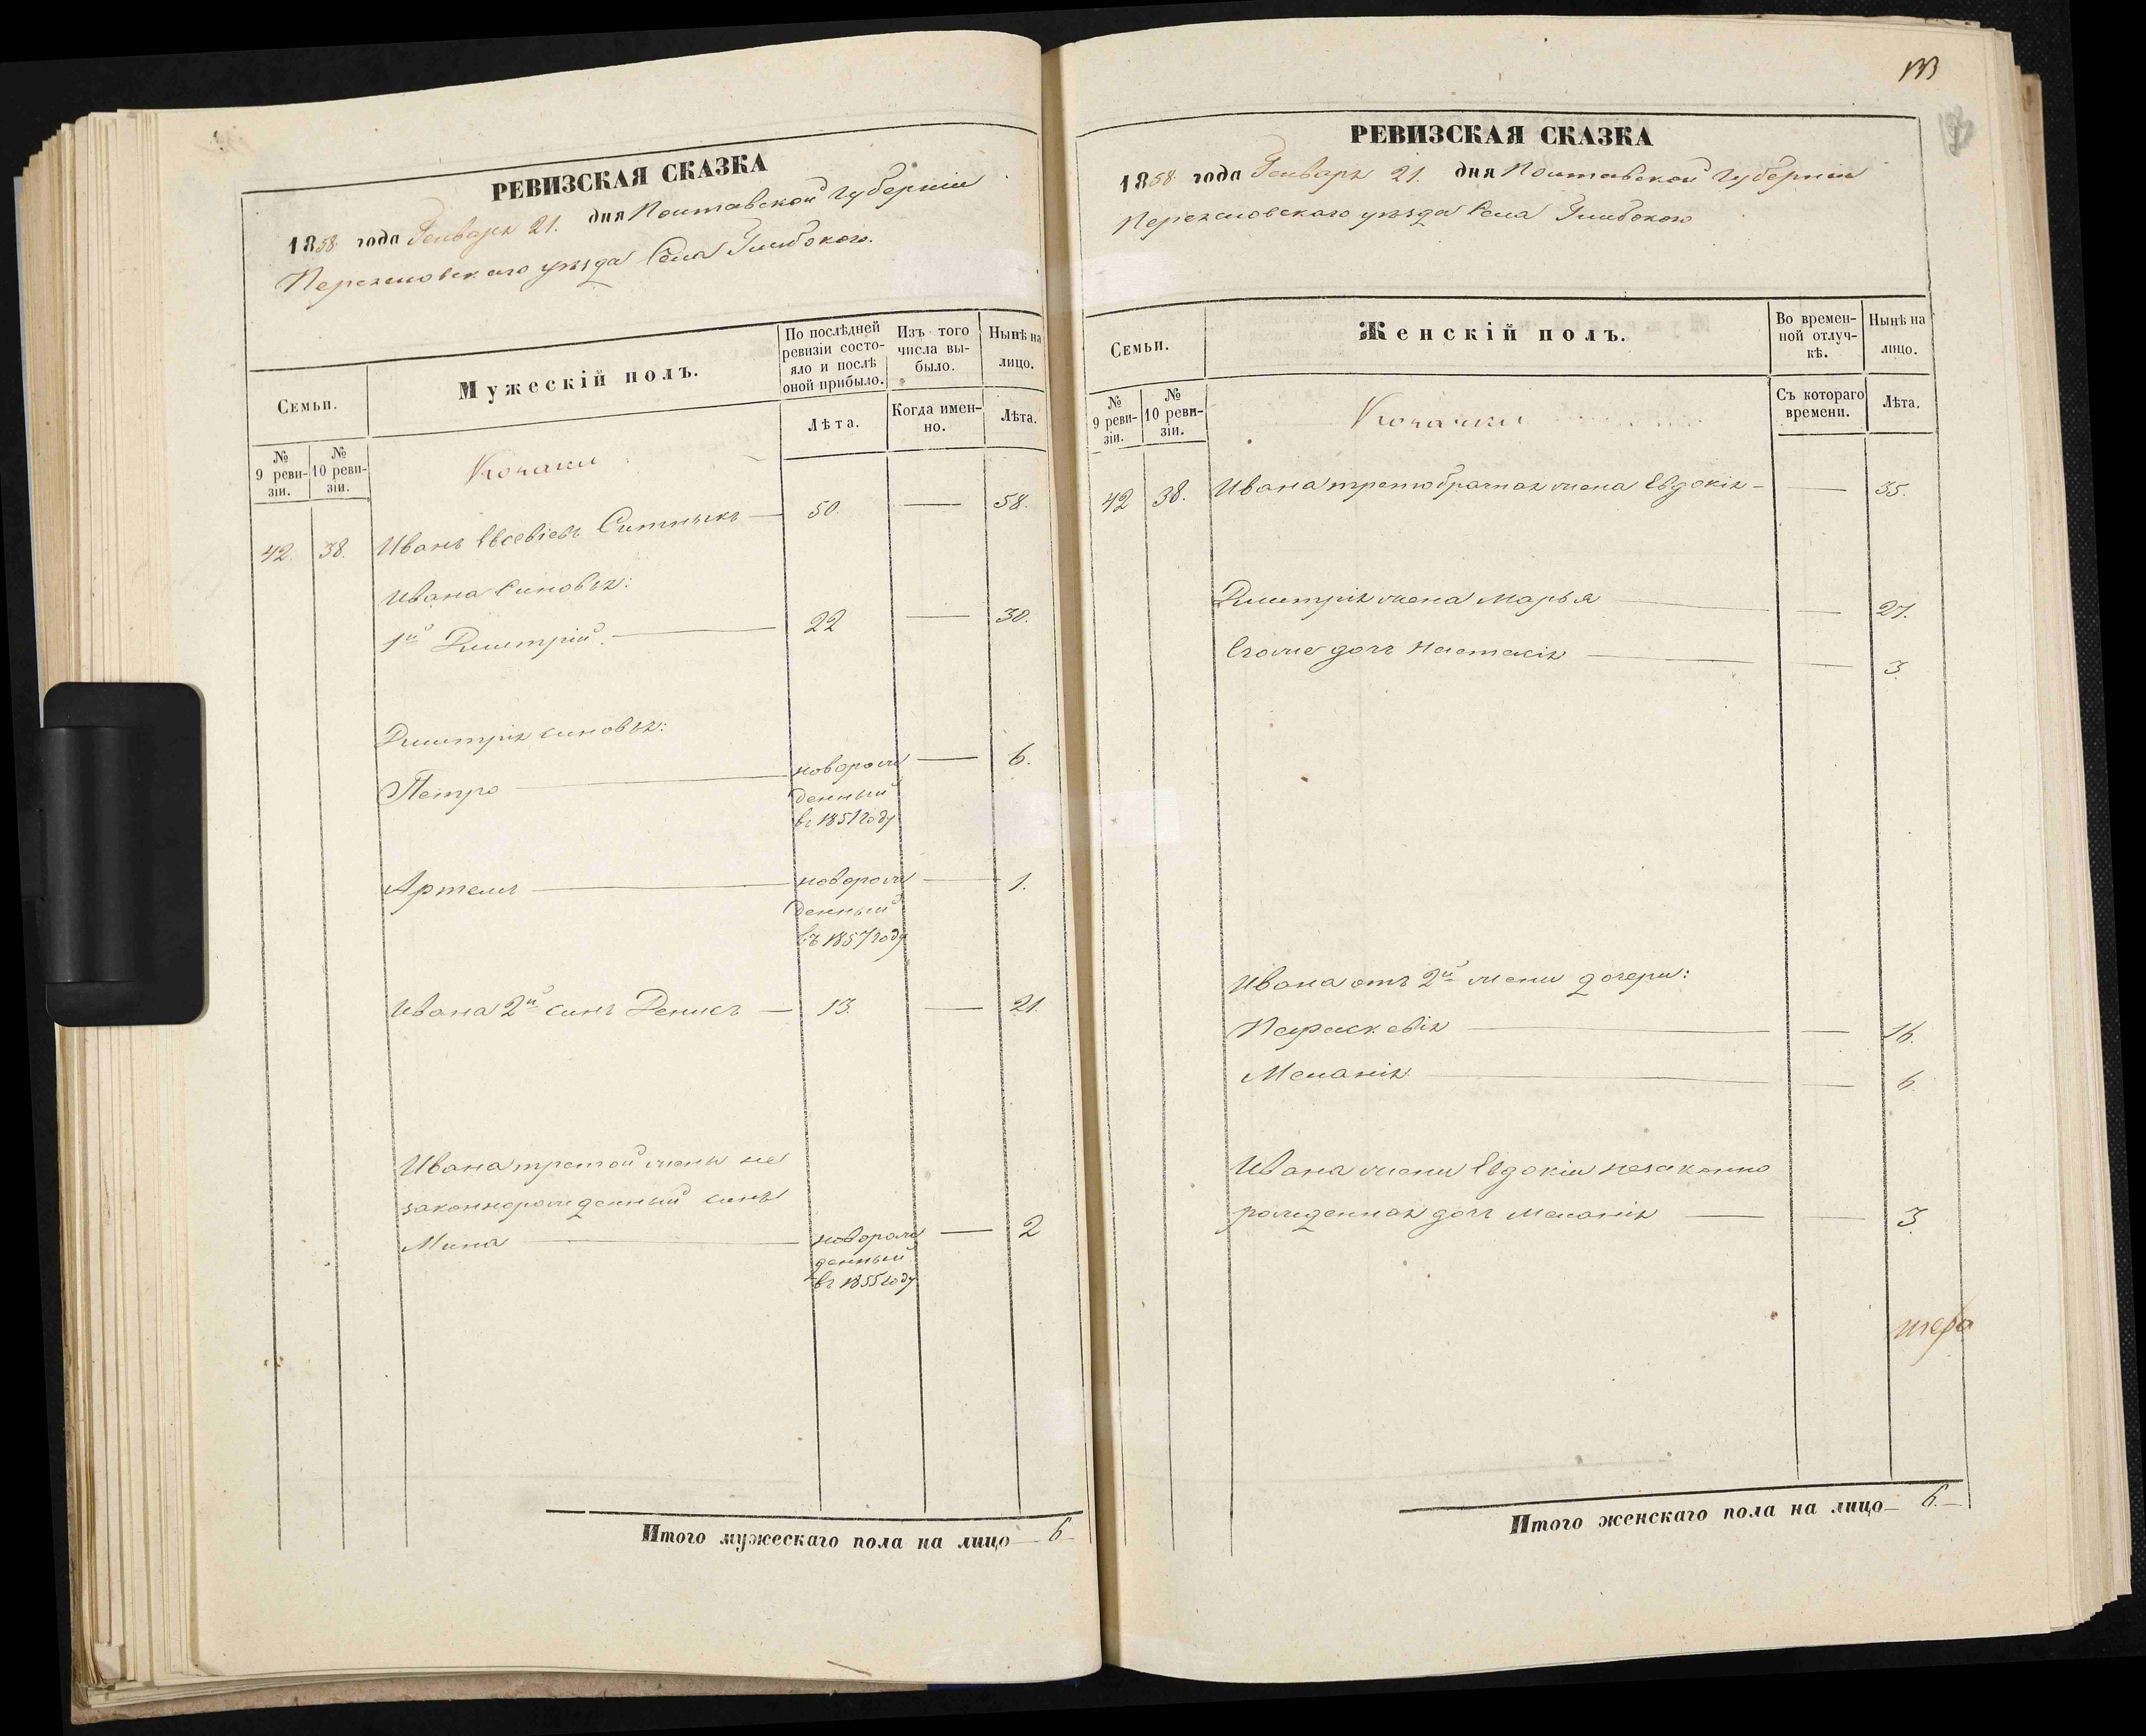 РЕВИЗСКАЯ СКАЗКА
1858 года Генваря 21. дня Полтавской губерніи
Переяславскаго уѣзда Села Глибокого.
Семьи.
Мужескій полъ.
По послѣдней ревизіи состояло и послѣ оной прибыло.
Изъ того числа выбыло.
Нынѣ на лицо.
Лѣта.
Когда именно.
Лѣта.
№ 9 ревизіи.
№ 10 ревизіи.
Козаки
42. 38. Иванъ Евсевіевъ Ситныкъ — 50. — 58.
Ивана Синовья:
1й Дмитрій. — 22 — 30.
Дмитрія синовья:
Петро — новорож — 6.
денный
въ 1851 году
Артемъ — новорож — 1.
денный
въ 1857 году
Ивана 2й синъ Денисъ — 13. — 21.
Ивана третой жены не
законнорожденный синъ
Мина — новорож — 2
денный
въ 1855 году
Итого мужескаго пола на лицо — 6 —
133
РЕВИЗСКАЯ СКАЗКА
1858 года Генваря 21. дня Полтавской губерніи
Переяславскаго уѣзда Села Глибокого
Семьи.
Женскій полъ.
Во временной отлучкѣ.
Нынѣ на лицо.
№ 9 ревизіи.
№ 10 ревизіи.
Съ котораго времени.
Лѣта.
Козачки
42 38. Ивана третобрачная жена Евдокія — — 35.
Дмитрія жена Марья — — 27.
Егоже дочь Настасія — — 3
Ивана отъ 2й жени дочери:
Параскевія — — 16.
Меланія — — 6.
Ивана жени Евдокіи незаконно
рожденная дочь Меланія — — 3
Итого женскаго пола на лицо — 6. —